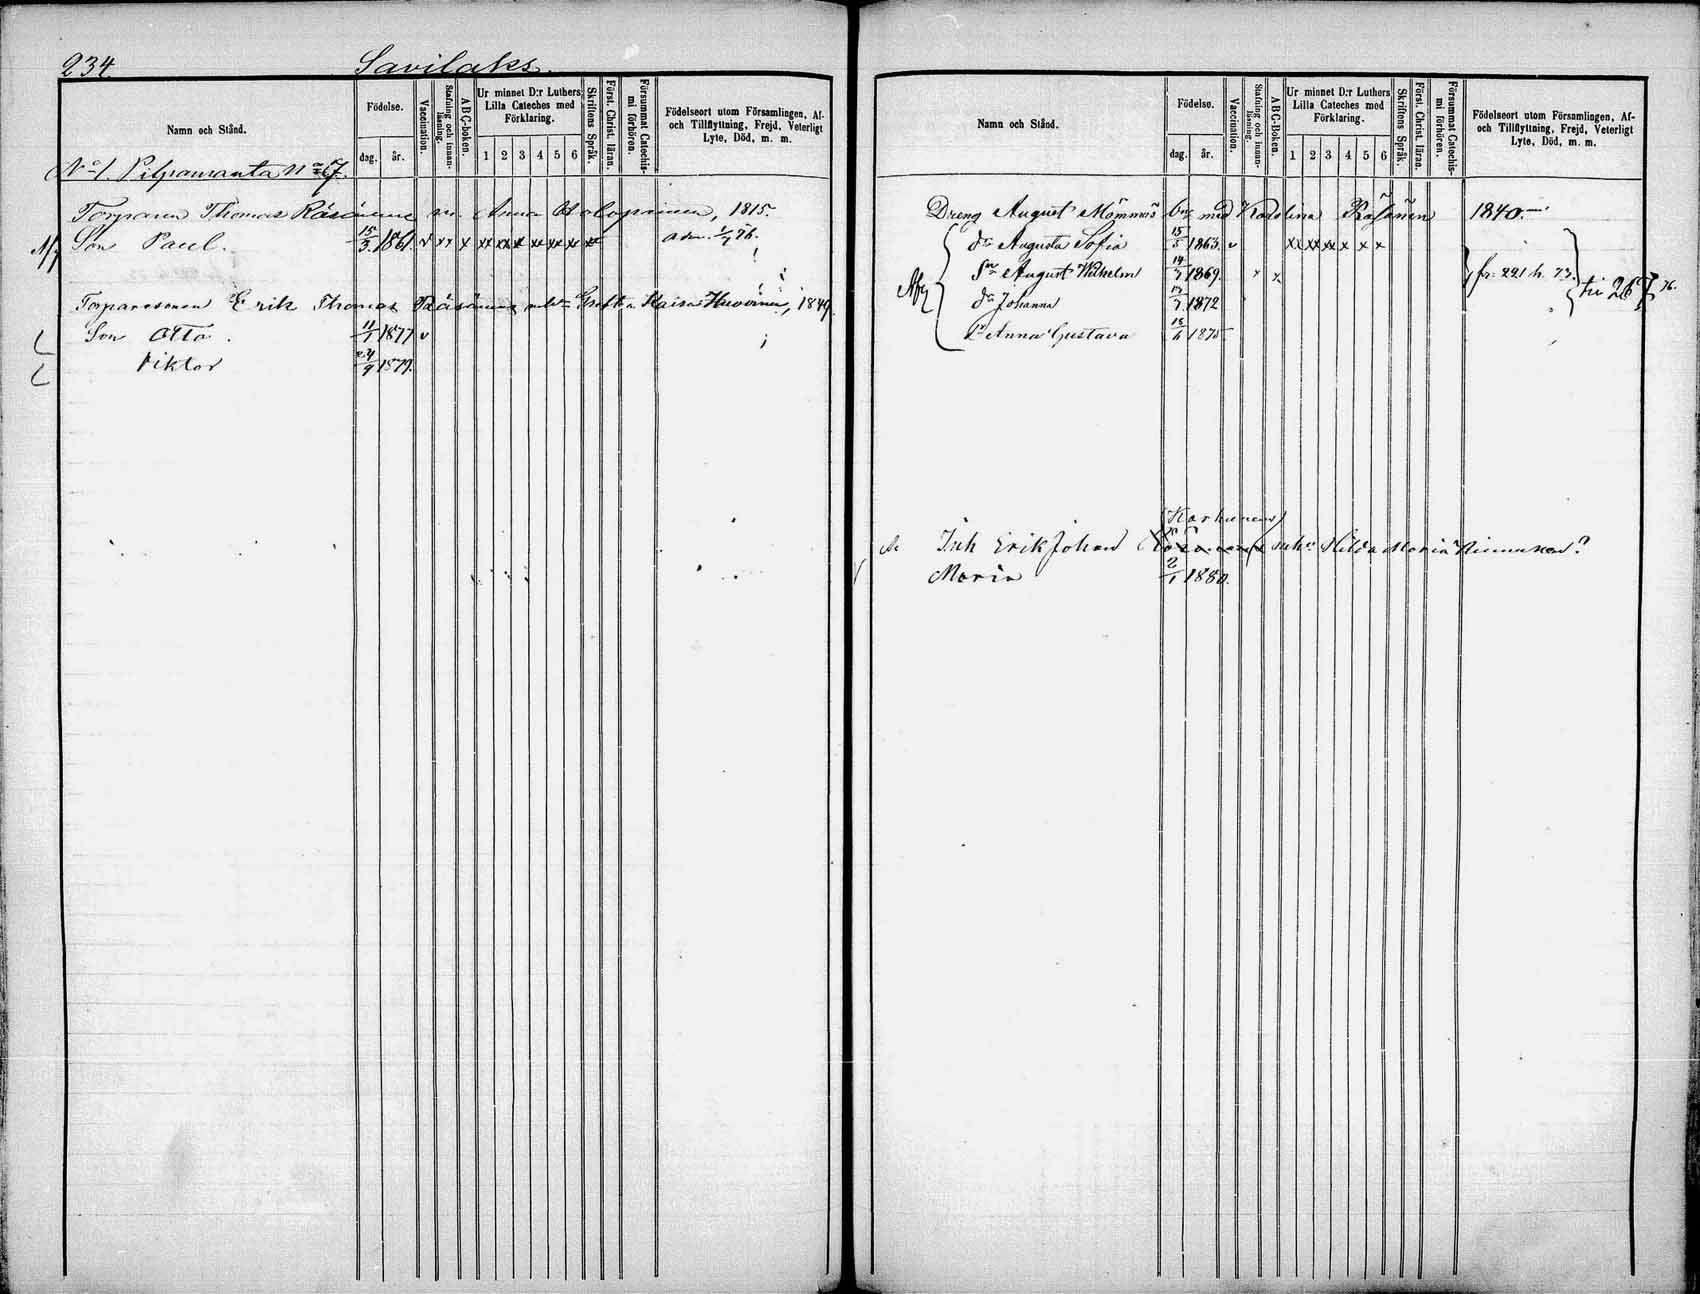 234. Savilaks.
Namn och Stånd.
Födelse.
dag. år.
Vaccination.
Stafning och innan-läsning.
ABC-boken.
Ur minnet D:r Luthers Lilla Cateches med Förklaring.
1 2 3 4 5 6
Skriftens Språk.
Först. Christ. läran.
Försummat Catechis-mi förhören.
Födelseort utom Församlingen, Af- och Tillflyttning, Frejd, Veterligt Lyte, Död, m. m.
No 1. Pilpamanta No 7.
Torparen Thomas Räsänen m. Anna Holopainen, 1815.
Son Paul. 15/3 1861. v xx x xx xx x xx x x x adm. 1/7 76.
Torparesonen Erik Thomas Räsänen Kaisa Huovinen, 1849
Son Otto. 11/1 1877 v
Viktor 24/9 1879.
Namn och Stånd.
Födelse.
dag. år.
Vaccination.
Stafning och innan-läsning.
ABC-Boken.
Ur minnet D:r Luthers Lilla Cateches med Förklaring.
1 2 3 4 5 6
Skriftens Språk.
Först. Christ. läran.
Försummat Catechis-mi förhören.
Födelseort utom Församlingen, Af- och Tillflyttning, Frejd, Veterligt Lyte, Död, m. m.
Dreng August Mömmö med Karolina Räsänen 1840.
dr Augusta Sofia 15/5 1863. v xx xx xx x x x
Sn August Wilhelm 14/7 1869. x x fr. 221 h. 73. till 267 76.
dr Johanna 1872
dr Anna Gustava 18/6 1875
(Korhonen)
Inh Erik Johan Hilda Maria ?
Maria 2/1 1880.